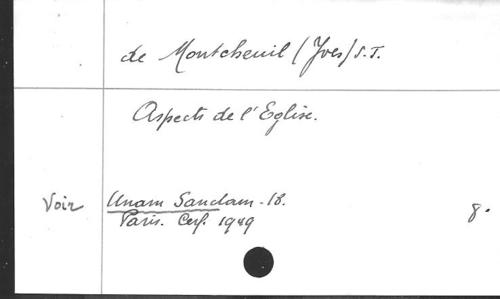 de Montcheuil (Yves) S.J.
Aspects de l'Eglise.
Voir Unam Sanctam - 18.
Paris. Cerf. 1949 8.